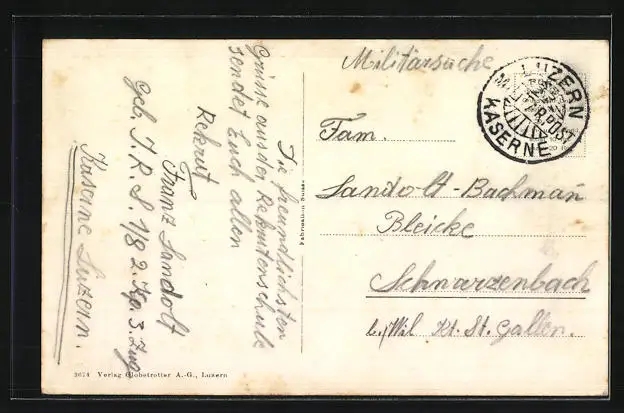 Die freundlichsten
Grüsse aus der Rekrutenschule
sendet Euch allen
Rekrut
Franz Landolt
Geb. I. R. S. 1/8 2. Kp. 3. Zug
Kaserne Luzern.
Fabrication Suisse
3674 Verlag Globetrotter A.-G., Luzern
Militärsache
LUZERN
KASERNE
Fam.
Landolt-Bachmann
Bleicke
Schwarzenbach
b./Wil Kt. St. Gallen.